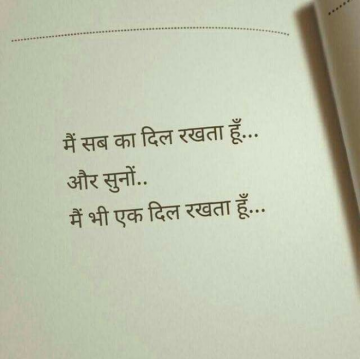 मैं सब का दिल रखता हूँ...
और सुनों..
मैं भी एक दिल रखता हूँ...